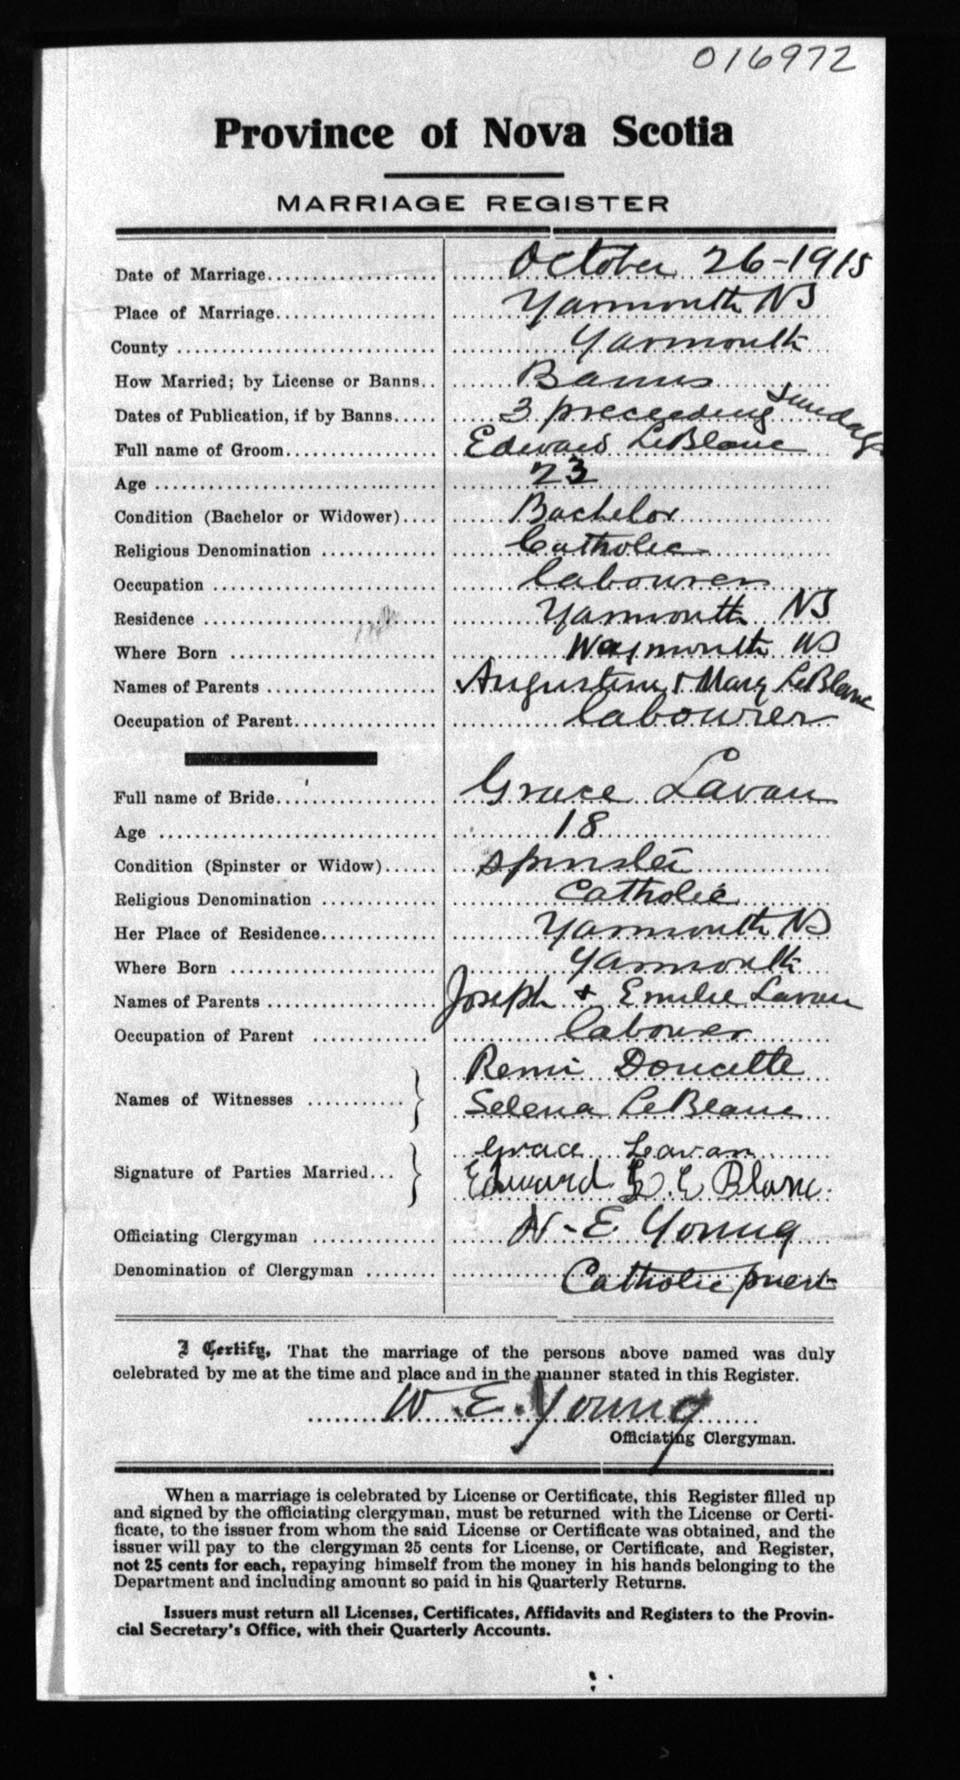 016972
Province of Nova Scotia
MARRIAGE REGISTER
Date of Marriage.................. October 26-1915
Place of Marriage................. Yarmouth NS
County ........................... Yarmouth
How Married; by License or Banns.. Banns
Dates of Publication, if by Banns..... 3 preceeding Sundays
Full name of Groom................ Edward LeBlanc
Age .............................. 23
Condition (Bachelor or Widower).... Bachelor
Religious Denomination ............ Catholic
Occupation ....................... labourer
Residence ........................ Yarmouth NS
Where Born ....................... Waymouth NS
Names of Parents ................. Augustine & Mary LeBlanc
Occupation of Parent.............. labourer
Full name of Bride................ Grace Lavan
Age .............................. 18
Condition (Spinster or Widow)...... spinster
Religious Denomination ............ Catholic
Her Place of Residence............ Yarmouth NS
Where Born ....................... Yarmouth
Names of Parents ................. Joseph & Emilie Lavan
Occupation of Parent ............. labourer
Remi Doucette
Names of Witnesses ...........
Selena LeBlanc
Grace Lavan
Signature of Parties Married...
Edward LeBlanc
Officiating Clergyman ............. W-E Young
Denomination of Clergyman ........ Catholic priest
I Certify, That the marriage of the persons above named was duly
celebrated by me at the time and place and in the manner stated in this Register.
W.E. Young
Officiating Clergyman.
When a marriage is celebrated by License or Certificate, this Register filled up
and signed by the officiating clergyman, must be returned with the License or Certi-
ficate, to the issuer from whom the said License or Certificate was obtained, and the
issuer will pay to the clergyman 25 cents for License, or Certificate, and Register,
not 25 cents for each, repaying himself from the money in his hands belonging to the
Department and including amount so paid in his Quarterly Returns.
Issuers must return all Licenses, Certificates, Affidavits and Registers to the Provin-
cial Secretary's Office, with their Quarterly Accounts.